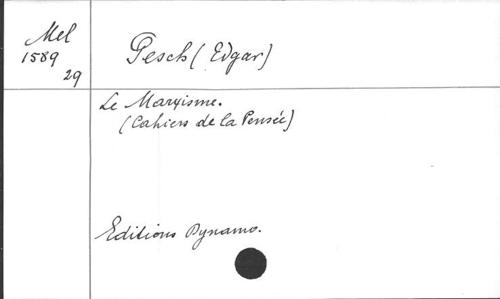 Mel
1589
29
Pesch (Edgar)
Le Marxisme.
(Cahiers de la Pensée)
Editions Dynamo.